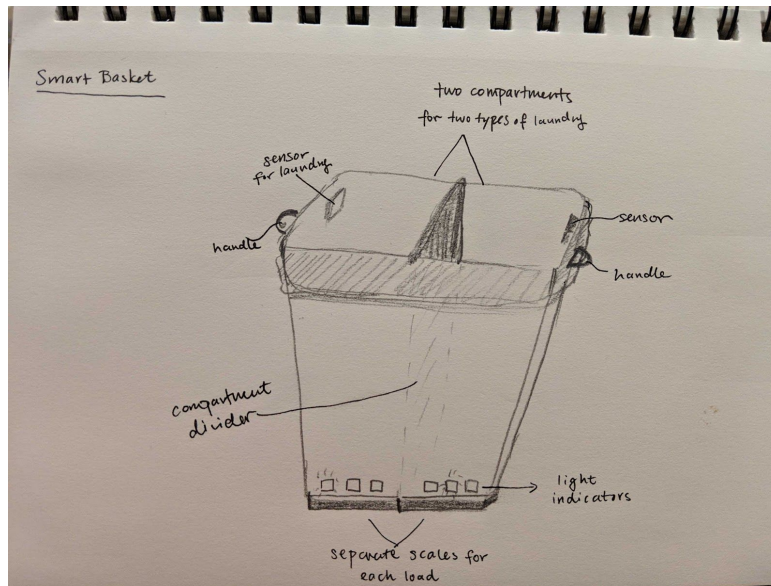 Smart Basket
two compartments
for two types of laundry
sensor
for laundry
sensor
handle
handle
compartment
divider
light
indicators
separate scales for
each load